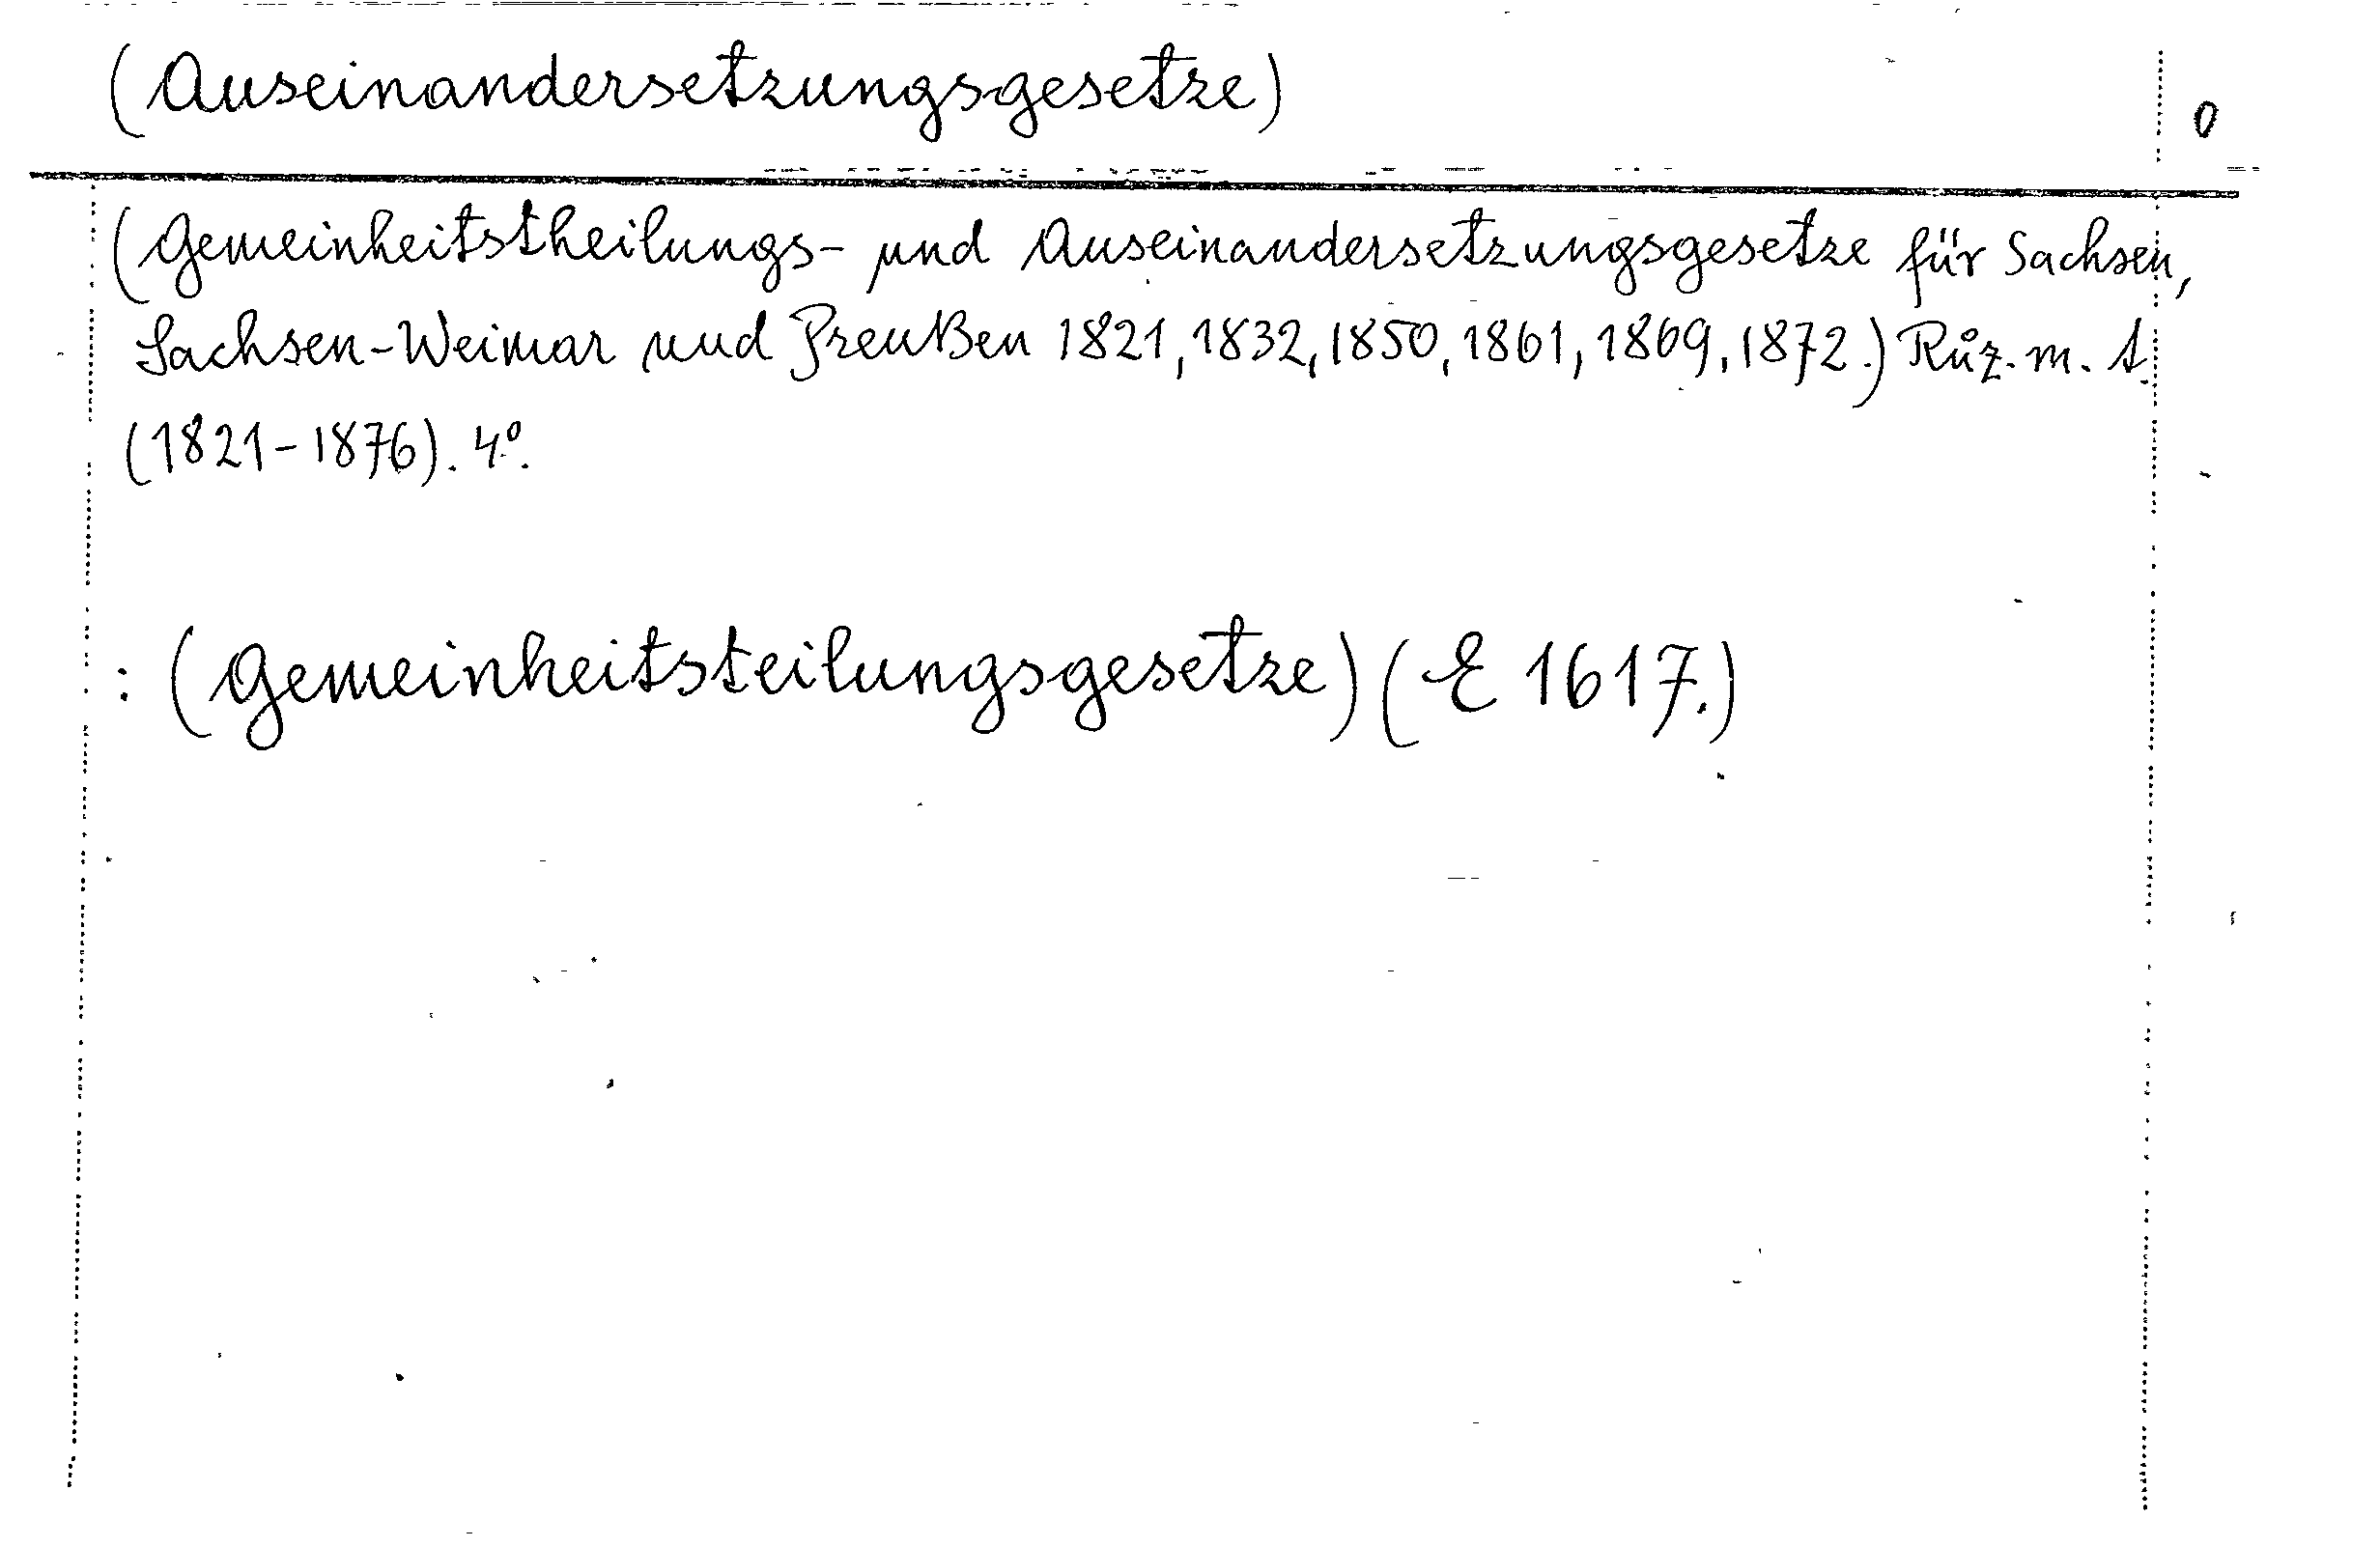 (Auseinandersetzungsgesetze) 0
(Gemeinheitstheilungs- und Auseinandersetzungsgesetze für Sachsen,
Sachsen-Weimar und Preußen 1821, 1832, 1850, 1861, 1869, 1872.) Růz. m. A
(1821-1876). 4º.
: (Gemeinheitsteilungsgesetze) (E 1617.)